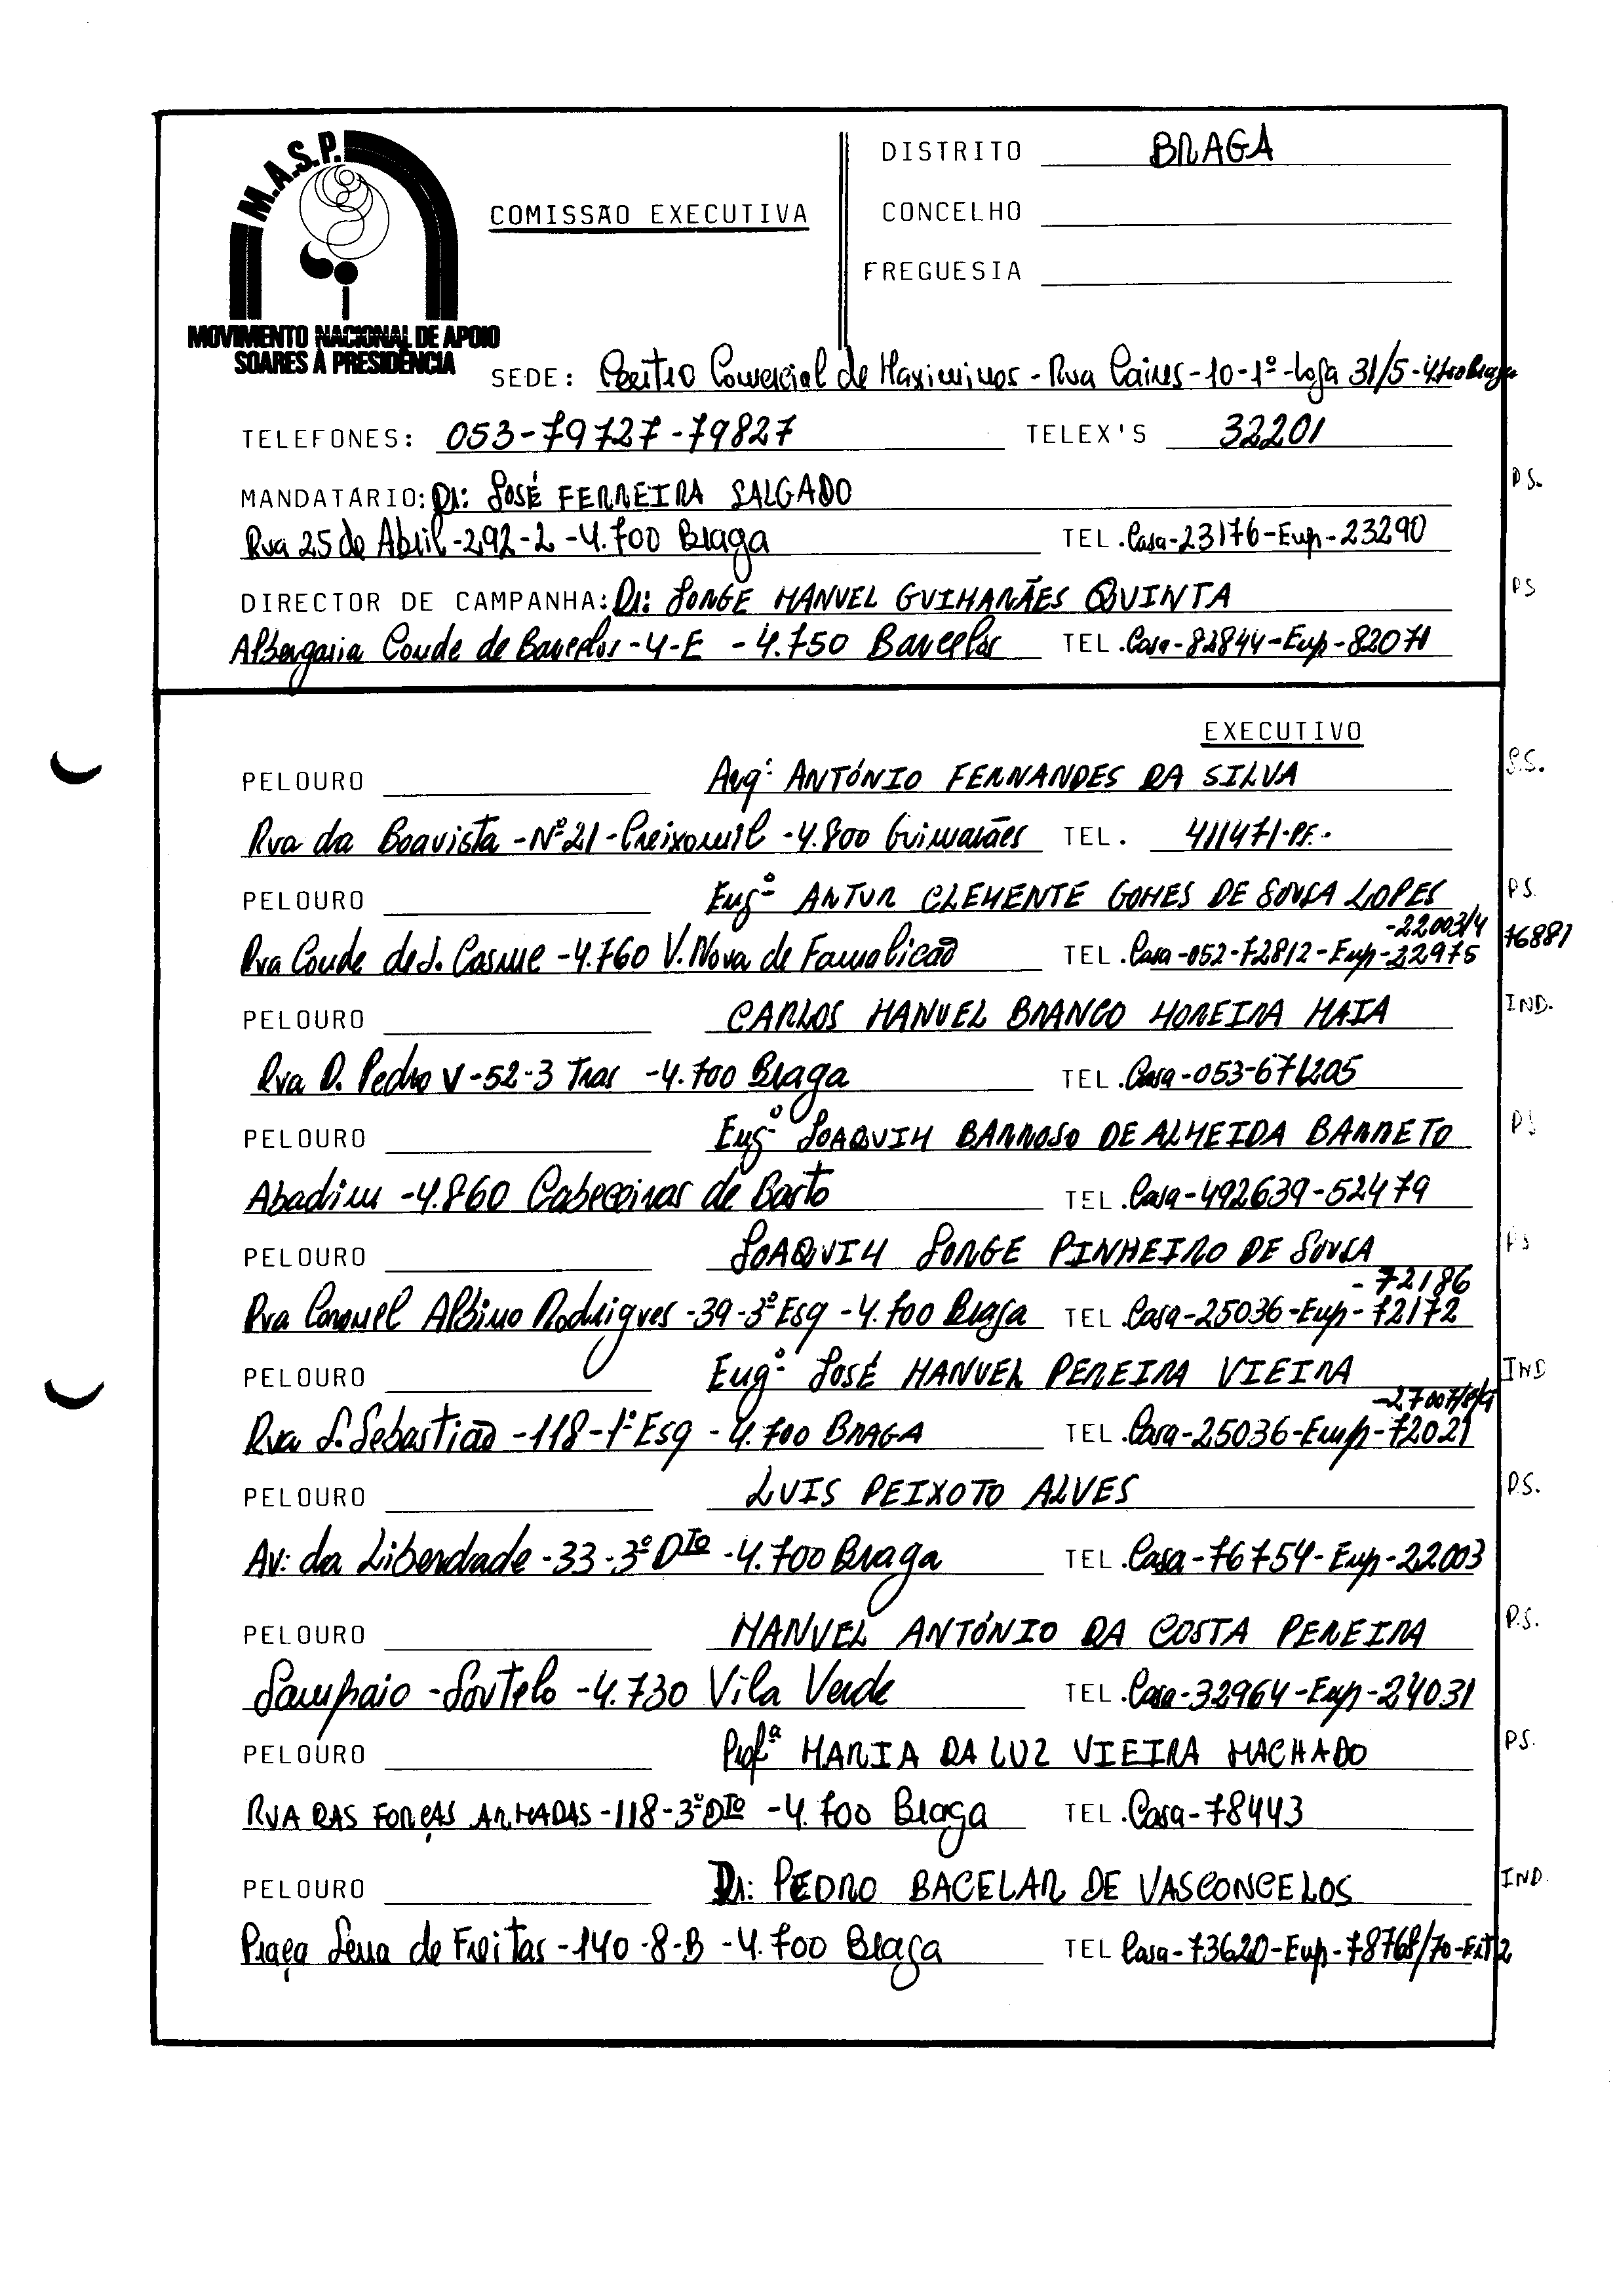 M.A.S.P.
MOVIMENTO NACIONAL DE APOIO
SOARES À PRESIDÊNCIA
COMISSÃO EXECUTIVA
DISTRITO BRAGA
CONCELHO
FREGUESIA
SEDE: Centro Comercial de Maximinos - Rua Caires - 10 - 1º - Loja 31/5 - 4700 Braga
TELEFONES: 053-79727-79827 TELEX'S 32201
MANDATÁRIO: Dr: JOSÉ FERREIRA SALGADO P.S.
Rua 25 de Abril - 292 - 2 - 4.700 Braga TEL. Casa - 23176 - Emp - 23290
DIRECTOR DE CAMPANHA: Dr: JORGE MANUEL GUIMARÃES QUINTA PS
Albergaria Conde de Barcelos - 4 - E - 4.750 Barcelos TEL. Casa - 82844 - Emp - 82071
EXECUTIVO
PELOURO Arqº ANTÓNIO FERNANDES DA SILVA P.S.
Rua da Boavista - Nº 21 - Creixomil - 4.800 Guimarães TEL. 411471-PF.
PELOURO Engº ARTUR CLEMENTE GOMES DE SOUSA LOPES P.S.
-22003/4 76881
Rua Conde de S. Cosme - 4.760 V. Nova de Famalicão TEL. Casa - 052-72812 - Emp - 22975
PELOURO CARLOS MANUEL BRANCO MOREIRA MAIA IND.
Rua D. Pedro V - 52 - 3 Tras - 4.700 Braga TEL. Casa - 053-671205
PELOURO Engº JOAQUIM BARROSO DE ALMEIDA BARRETO PS
Abadim - 4.860 Cabeceiras de Basto TEL. Casa - 492639 - 52479
PELOURO JOAQUIM JORGE PINHEIRO DE SOUSA PS
-72186
Rua Coronel Albino Rodrigues - 39 - 3º Esq - 4.700 Braga TEL. Casa - 25036 - Emp - 72172
PELOURO Engº JOSÉ MANUEL PEREIRA VIEIRA IND
-27007/8/9
Rua S. Sebastião - 118 - 1º Esq - 4.700 BRAGA TEL. Casa - 25036 - Emp - 72021
PELOURO LUIS PEIXOTO ALVES P.S.
Av: da Liberdade - 33 - 3º DTO - 4.700 Braga TEL. Casa - 76754 - Emp - 22003
PELOURO MANUEL ANTÓNIO DA COSTA PEREIRA P.S.
Sampaio - Soutelo - 4.730 Vila Verde TEL. Casa - 32964 - Emp - 24031
PELOURO Profª MARIA DA LUZ VIEIRA MACHADO PS.
RUA DAS FORÇAS ARMADAS - 118 - 3º DTO - 4.700 Braga TEL. Casa - 78443
PELOURO Dr: PEDRO BACELAR DE VASCONCELOS IND.
Praça Sena de Freitas - 140 - 8 - B - 4.700 Braga TEL Casa - 73620 - Emp - 78768/70 - Ext 2